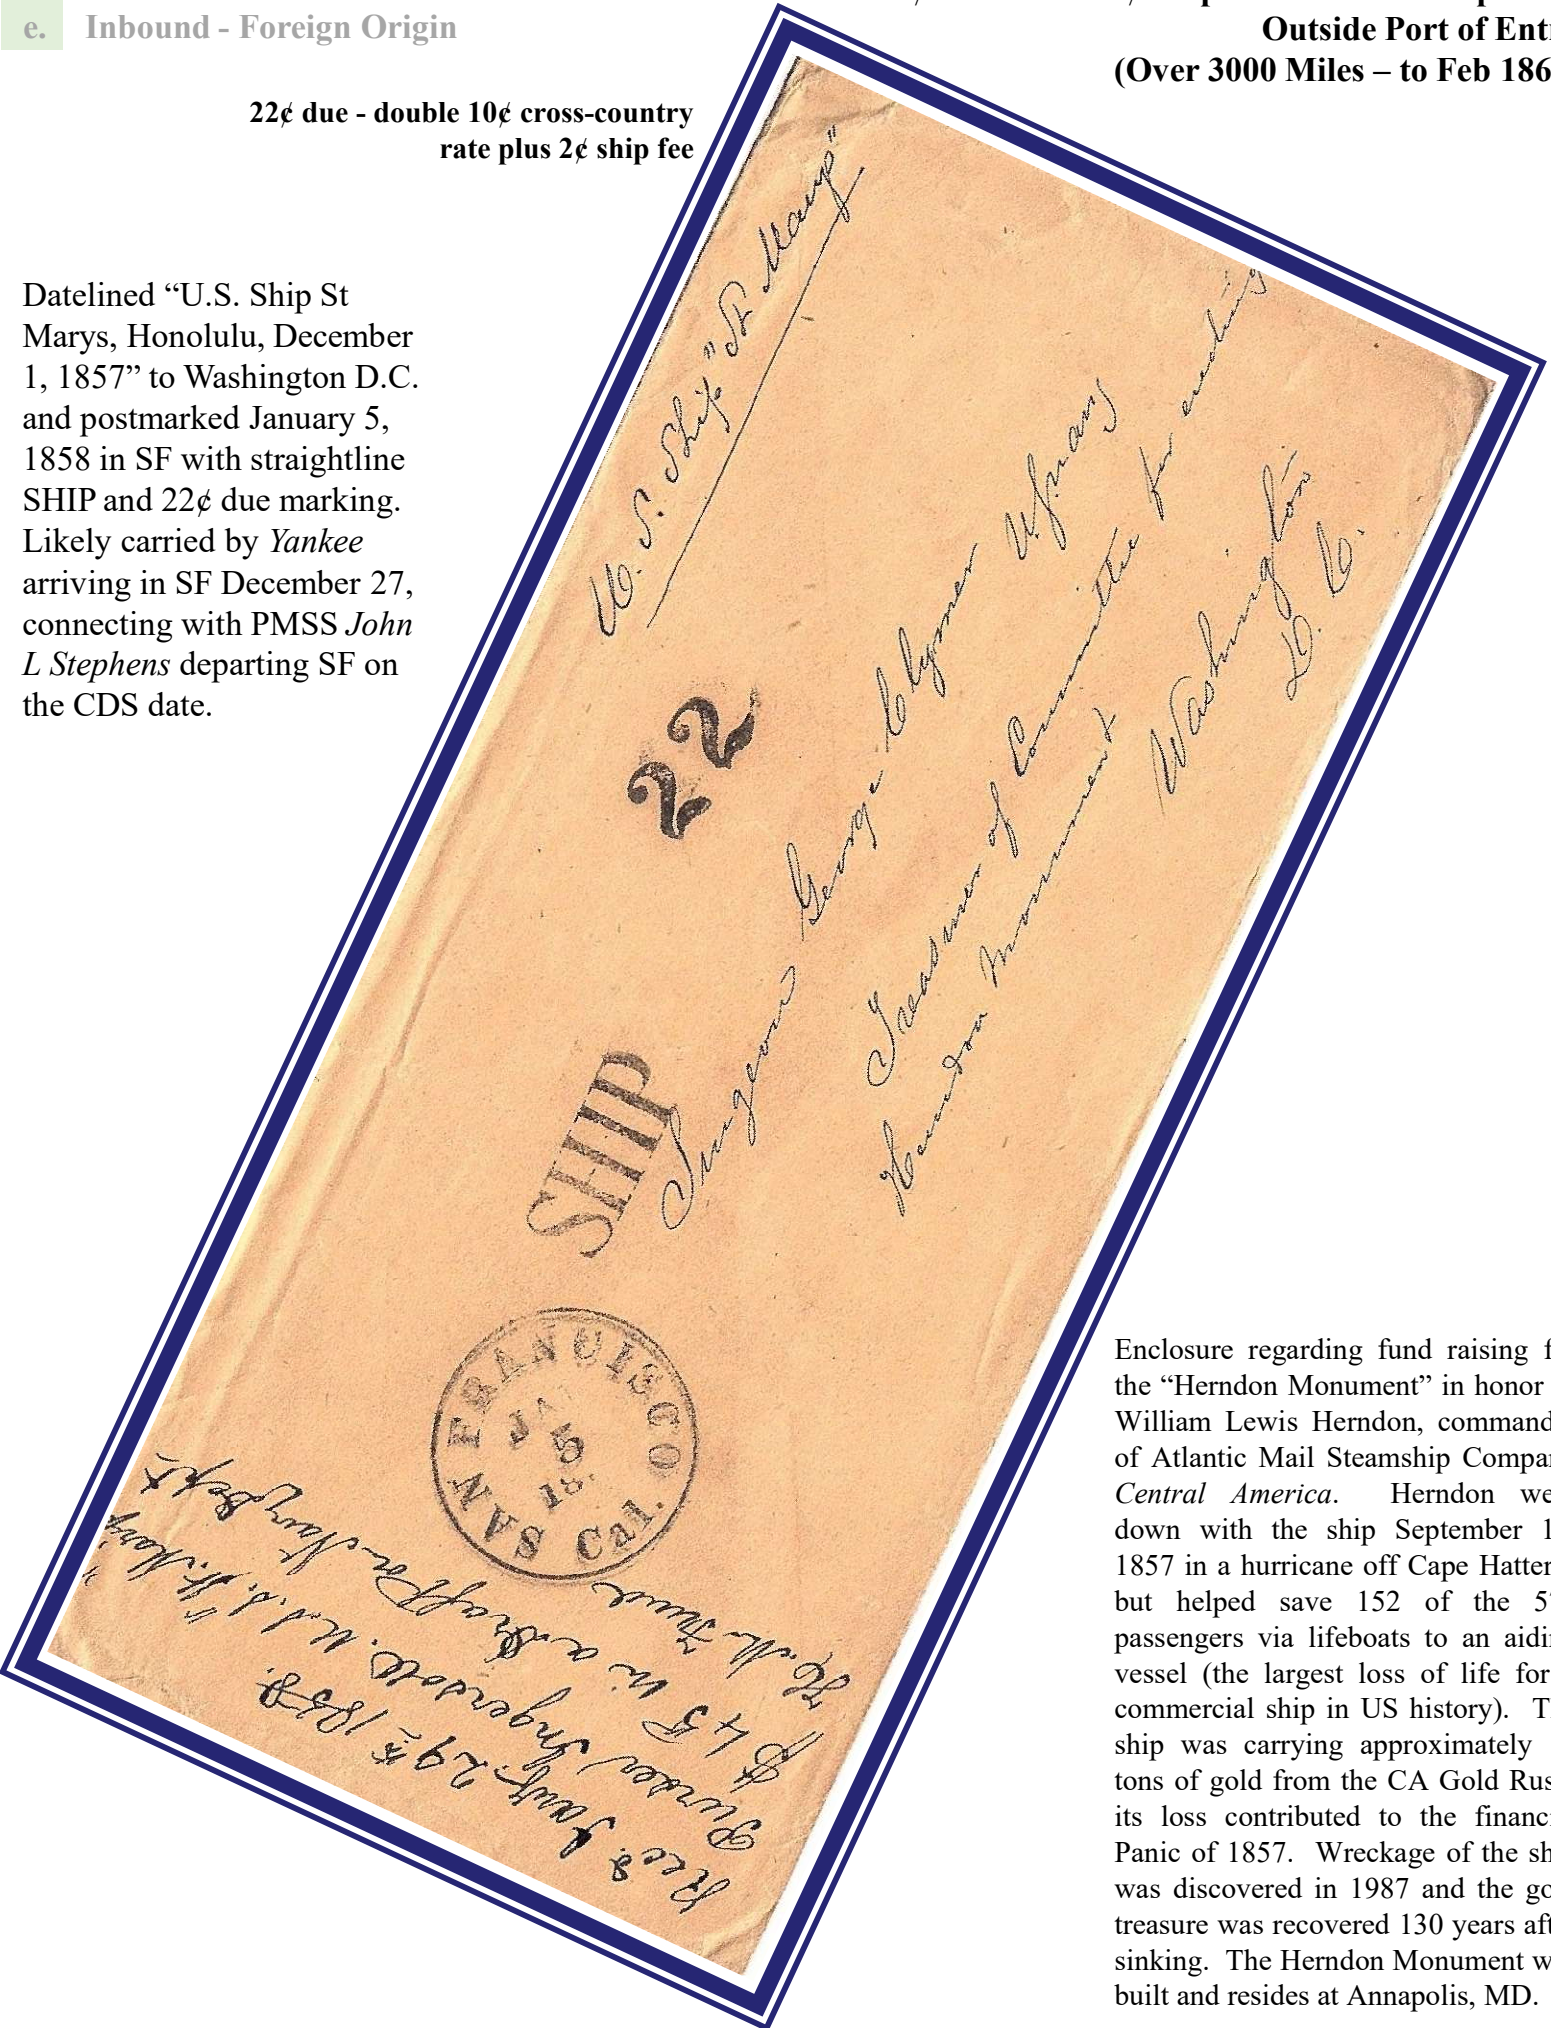 e. Inbound - Foreign Origin
Outside Port of Ent
(Over 3000 Miles – to Feb 186
22¢ due - double 10¢ cross-country
rate plus 2¢ ship fee
Datelined “U.S. Ship St
Marys, Honolulu, December
1, 1857” to Washington D.C.
and postmarked January 5,
1858 in SF with straightline
SHIP and 22¢ due marking.
Likely carried by Yankee
arriving in SF December 27,
connecting with PMSS John
L Stephens departing SF on
the CDS date.
U. S. Ship "St Marys"
22
SHIP
Surgeon George Clymer U.S. Navy
Treasurer of Committee for erecting
Herndon Monument
Washington
D. C.
SAN FRANCISCO Cal.
JAN
5
18
Recd. Jany. 29th 1858.
Purser Ingersoll. U.S.S. "St. Marys"
$45 in a Draft on Navy Dept
Enclosure regarding fund raising f
the “Herndon Monument” in honor
William Lewis Herndon, command
of Atlantic Mail Steamship Compa
Central America. Herndon we
down with the ship September 1
1857 in a hurricane off Cape Hatter
but helped save 152 of the 5
passengers via lifeboats to an aidi
vessel (the largest loss of life for
commercial ship in US history). T
ship was carrying approximately
tons of gold from the CA Gold Rus
its loss contributed to the financi
Panic of 1857. Wreckage of the sh
was discovered in 1987 and the go
treasure was recovered 130 years aft
sinking. The Herndon Monument w
built and resides at Annapolis, MD.